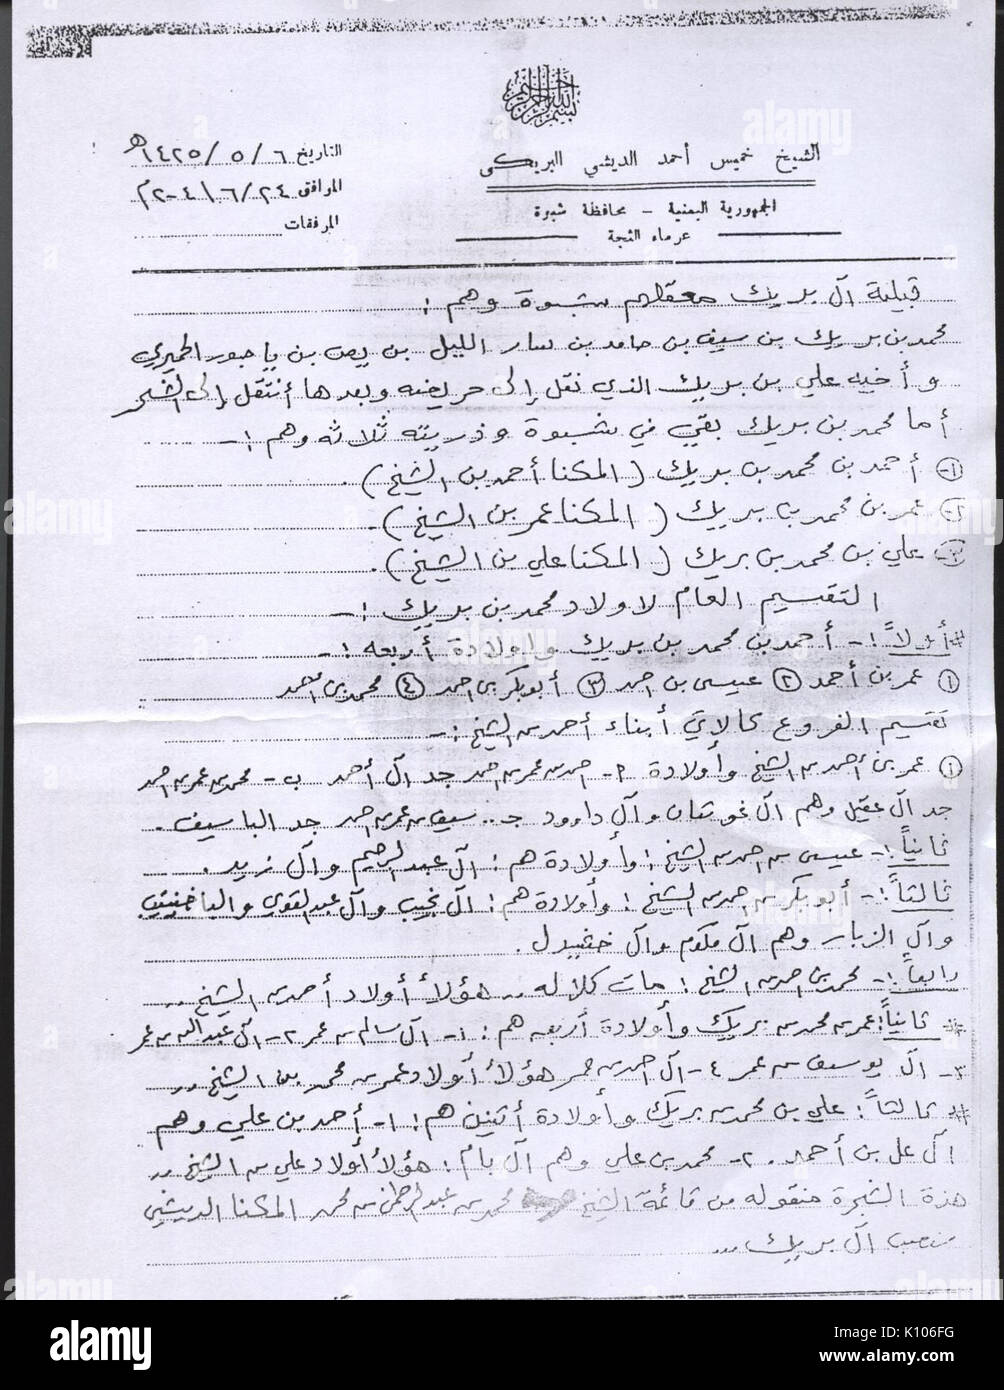 بسم الله الرحمن الرحيم
الشيخ خميس أحمد الديشي البريكي
الجمهورية اليمنية - محافظة شبوة
عرماء الثجة
التاريخ ٦ / ٥ / ١٤٢٥هـ
الموافق ٢٤ / ٦ / ٢٠٠٤م
المرفقات
قبيلة آل بريك معقلهم شبوة وهم :
محمد بن بريك بن سيف بن حامد بن سار الليل بن يص بن ياجور الحميري
وأخيه علي بن بريك الذي نقل إلى حريضه وبعدها أنتقل إلى الشحر
أما محمد بن بريك بقي في شبوة وذريته ثلاثه وهم :-
١- أحمد بن محمد بن بريك (المكنا أحمد بن الشيخ).
٢- عمر بن محمد بن بريك (المكنا عمر بن الشيخ).
٣- علي بن محمد بن بريك (المكنا علي بن الشيخ).
التقسيم العام لاولاد محمد بن بريك :-
* أولاً :- أحمد بن محمد بن بريك واولادة أربعه :-
١ عمر بن أحمد ٢ عيسى بن احمد ٣ أبوبكر بن احمد ٤ محمد بن احمد
تقسيم الفروع كالاتي أبناء أحمد بن الشيخ :-
١ عمر بن أحمد بن الشيخ وأولادة أ- احمد بن عمر بن احمد جد آل أحمد ب- محمد بن عمر بن احمد
جد آل عقيل وهم آل غوثان وآل داوود جـ.. سيف بن عمر بن احمد جد الباسيف.
ثانياً :- عيسى بن احمد بن الشيخ : وأولادة هم : آل عبد الرحيم وآل زيد.
ثالثاً :- أبوبكر بن احمد بن الشيخ : وأولادة هم : آل نجيب وآل عبد القوي
وآل الزبار وهم آل مكرم وآل
رابعاً :- محمد بن احمد بن الشيخ : مات كلاله .. هؤلأ أولاد أحمد بن الشيخ ..
* ثانياً : عمر بن محمد بن بريك وأولادة أربعه هم : ١- آل سالم بن عمر ٢- آل عبدالله بن عمر
٣- آل يوسف بن عمر ٤- آل احمد بن عمر هؤلأ أولاد عمر بن محمد بن الشيخ ..
* ثالثاً : علي بن محمد بن بريك وأولادة أثنين هم : ١- أحمد بن علي وهم
آل علي بن أحمد. ٢- محمد بن علي وهم آل يام : هؤلأ أولاد علي بن الشيخ ..
هذة الشجرة منقوله من قائمة الشيخ محمد بن عبدالرحمن بن محمد المكنا الديشي
منصب آل بريك ...
alamy
K106FG
www.alamy.com